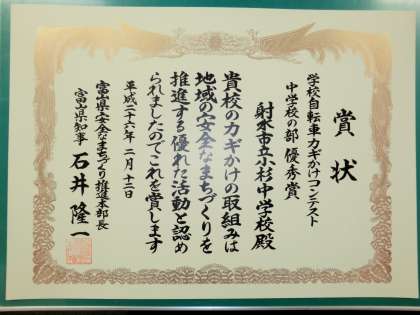 賞状
学校自転車カギかけコンテスト
中学校の部 優秀賞
射水市立小杉中学校殿
貴校のカギかけの取組みは
地域の安全なまちづくりを
推進する優れた活動と認め
られましたのでこれを賞します
平成二十六年二月十二日
富山県安全なまちづくり推進本部長
富山県知事 石井隆一